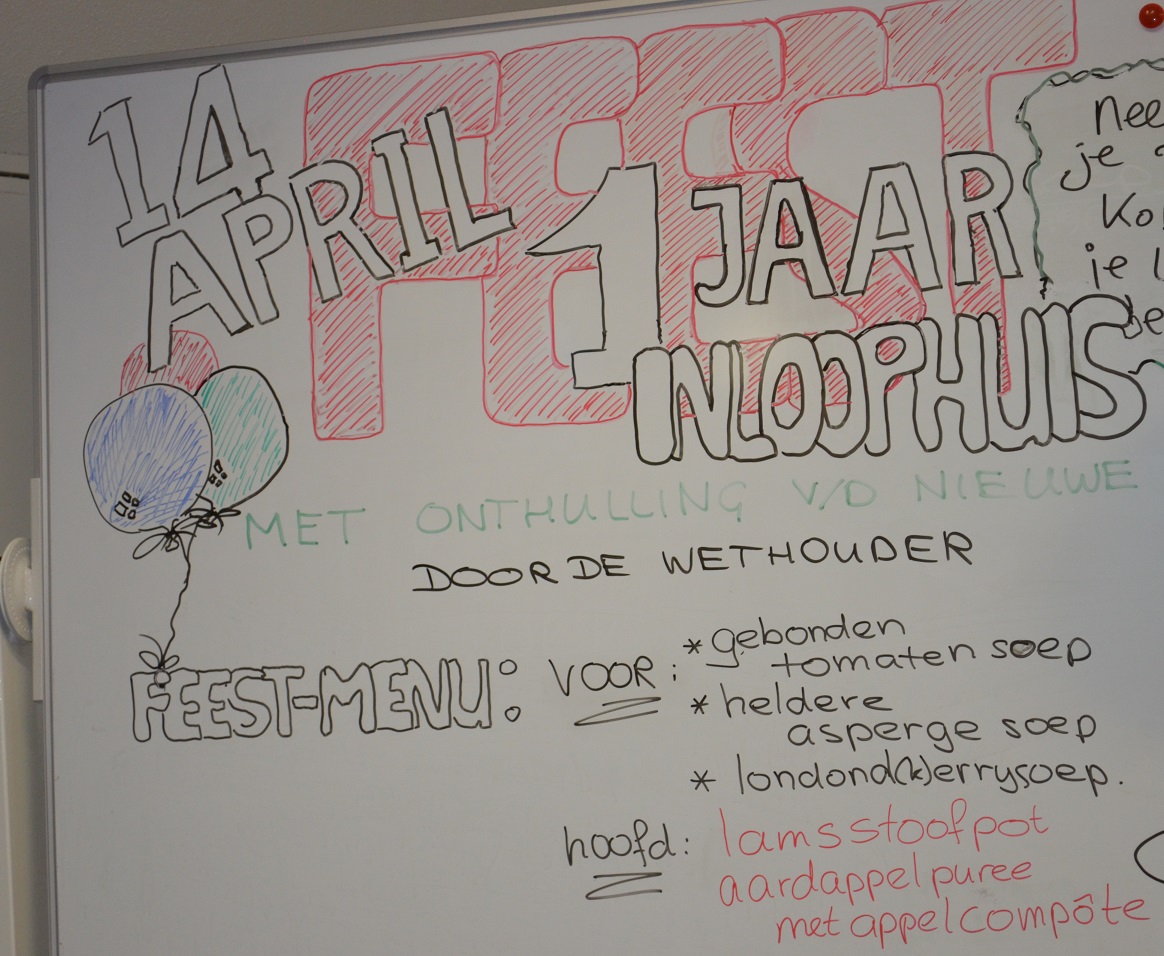 FEEST
14
APRIL
1 JAAR
INLOOPHUIS
MET ONTHULLING V/D NIEUWE
DOOR DE WETHOUDER
FEEST-MENU:
VOOR:
* gebonden
tomaten soep
* heldere
asperge soep
* londond(k)errysoep.
hoofd: lamsstoofpot
aardappelpuree
met appelcompôte
je
je